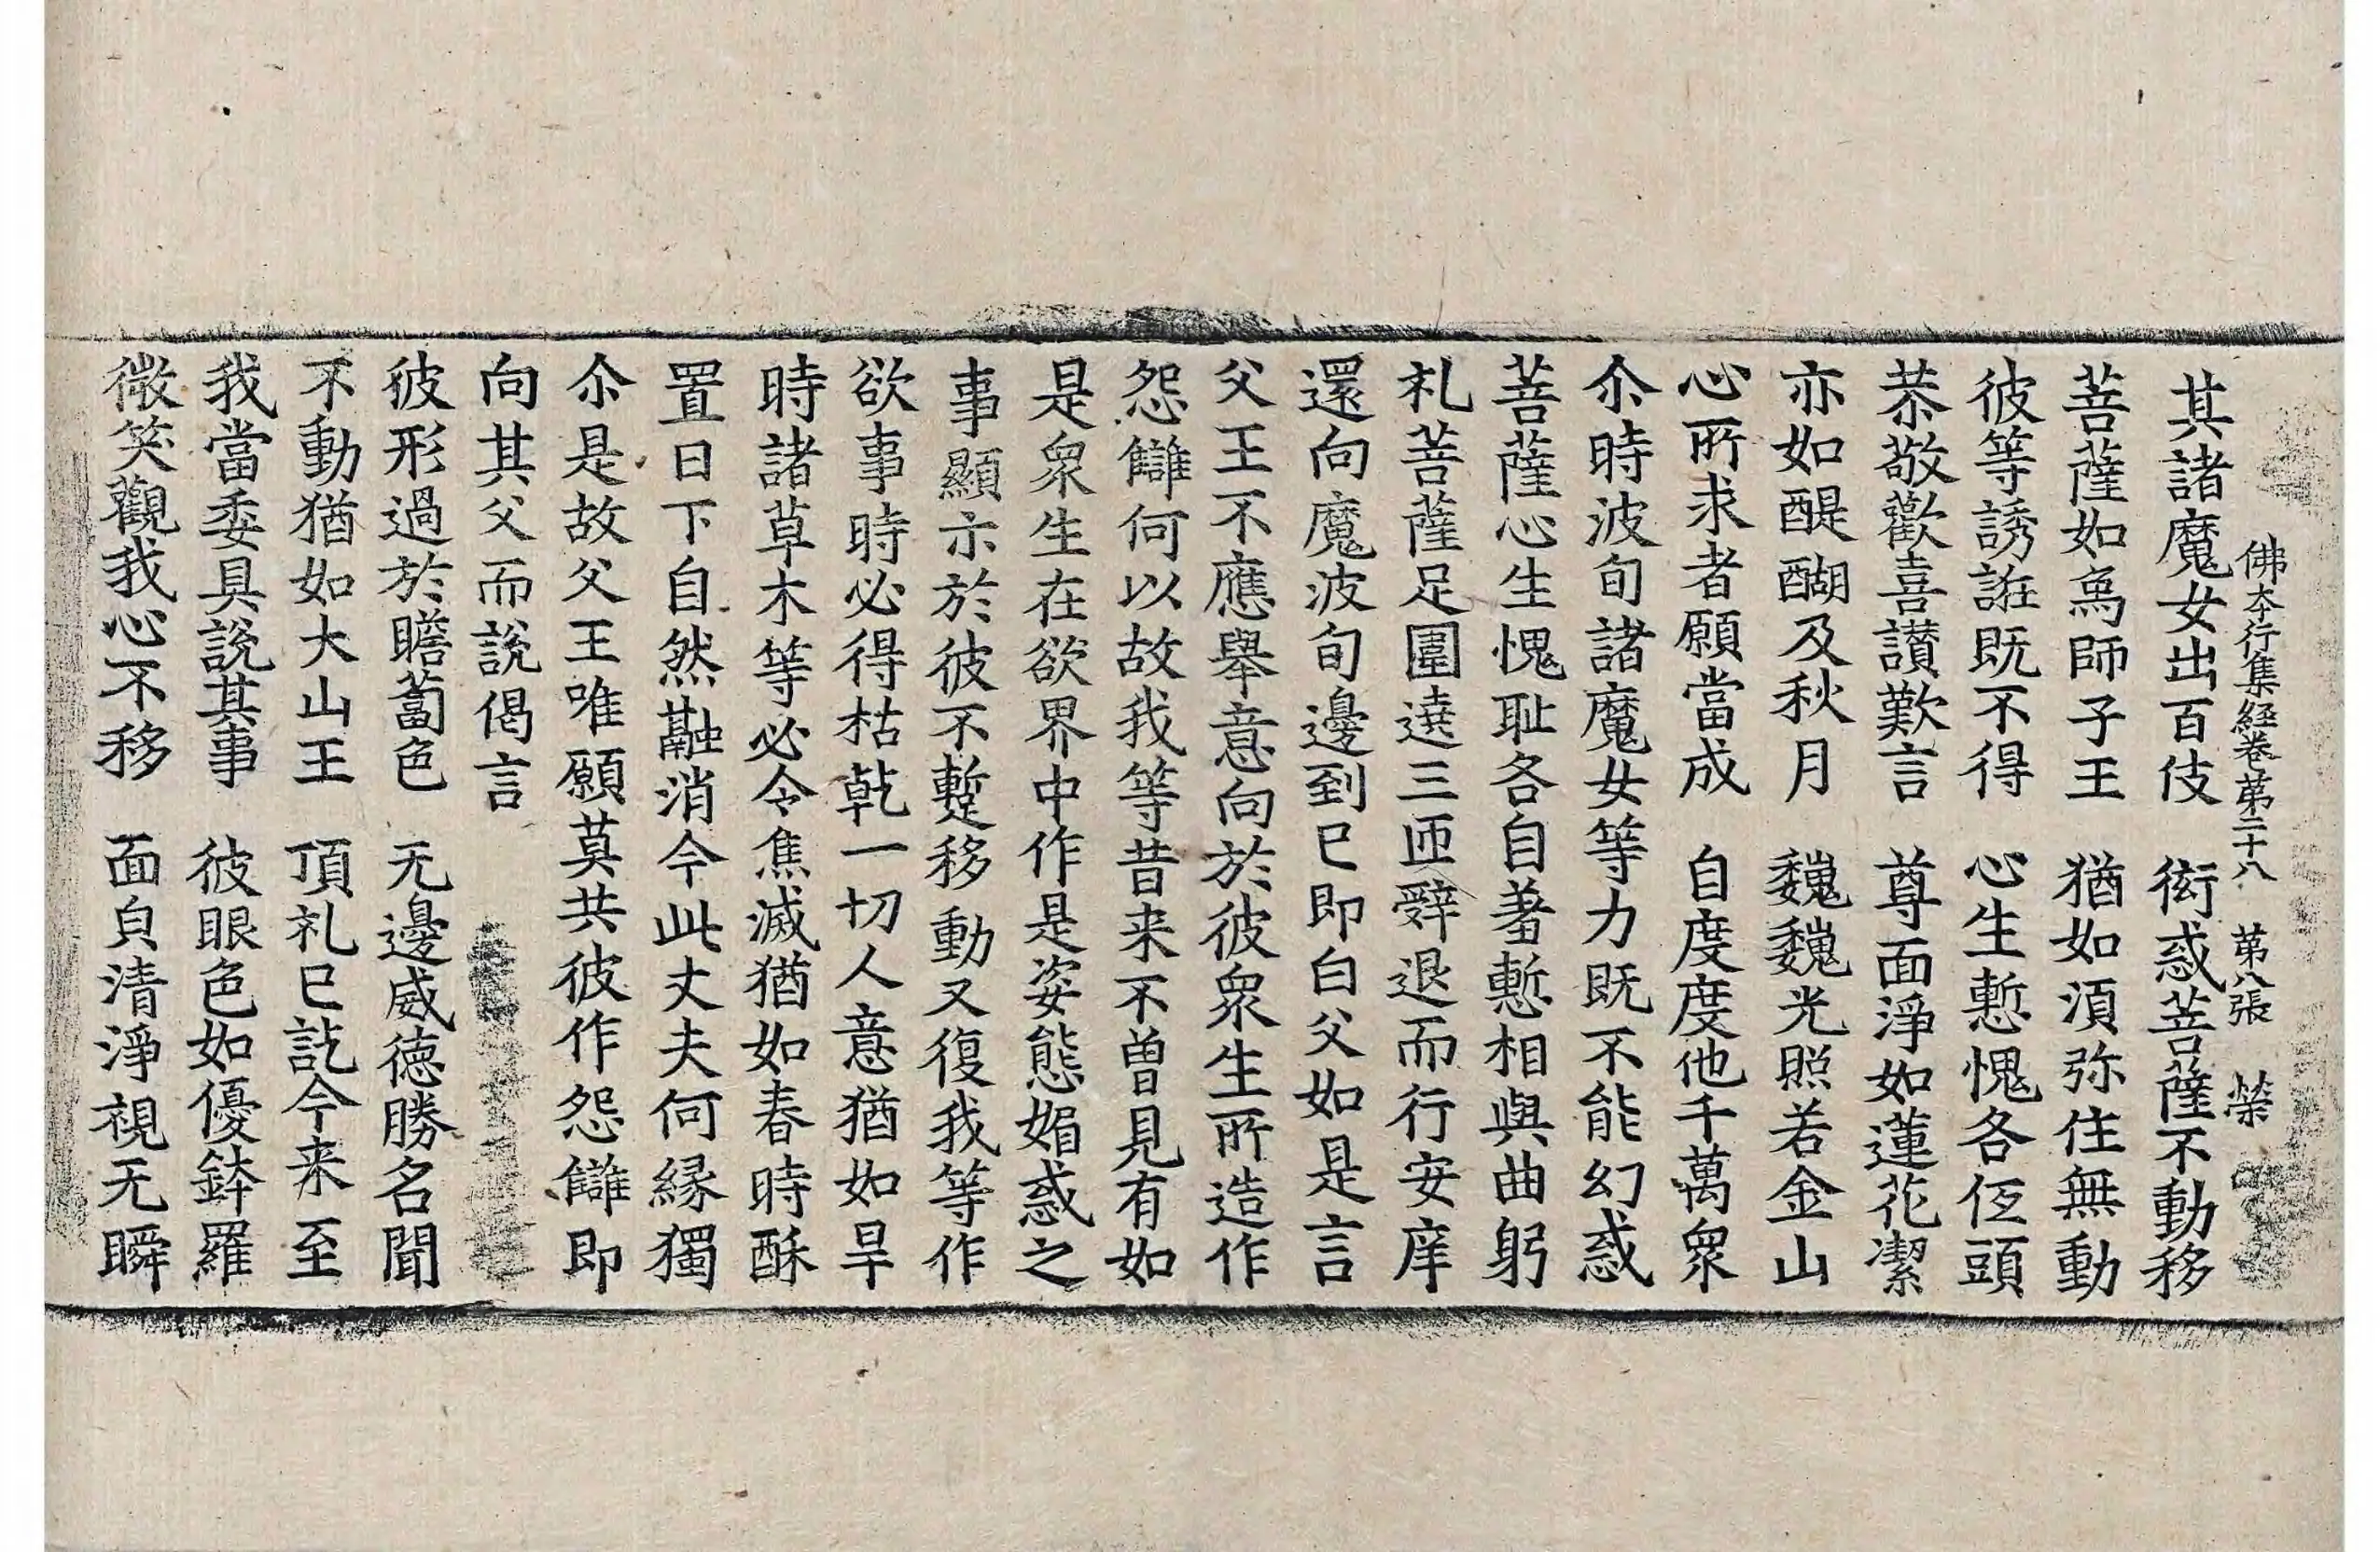 佛本行集経卷第二十八 第八張 榮
其諸魔女出百伎 衒惑菩薩不動移
菩薩如為師子王 猶如湏弥住無動
彼等誘誑既不得 心生慙愧各伍頭
恭敬歡喜讃歎言 尊面淨如蓮花潔
亦如醍醐及秋月 巍巍光照若金山
心所求者願當成 自度度他千萬衆
尒時波旬諸魔女等力既不能幻惑
菩薩心生愧耻各自羞慙相與曲躬
礼菩薩足圍遶三匝辤退而行安庠
還向魔波旬邊到已即白父如是言
父王不應舉意向於彼衆生所造作
怨讎何以故我等昔来不曽見有如
是衆生在欲界中作是姿態媚惑之
事顯示於彼不蹔移動又復我等作
欲事時必得枯乾一切人意猶如旱
時諸草木等必令焦滅猶如春時酥
置日下自然融消今此丈夫何縁獨
尒是故父王唯願莫共彼作怨讎即
向其父而說偈言
彼形過於瞻蔔色 无邊威德勝名聞
不動猶如大山王 頂礼已訖今来至
我當委具說其事 彼眼色如優鉢羅
微笑觀我心不移 面皃清淨視无瞬